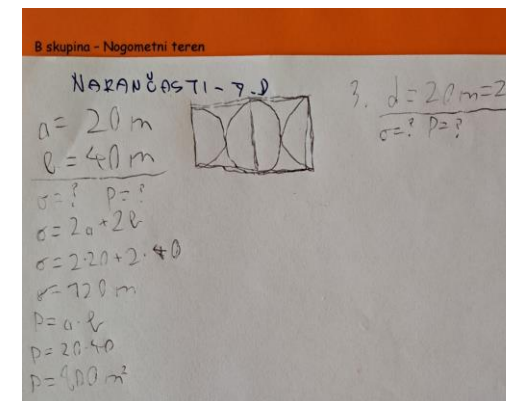 B skupina - Nogometni teren
NARANČASTI - 7.D
a = 20 m
b = 40 m
σ = ? P = ?
σ = 2a + 2b
σ = 2·20 + 2·40
σ = 120 m
P = a·b
P = 20·40
P = 800 m²
3. d = 20 m = 2
σ = ? P = ?